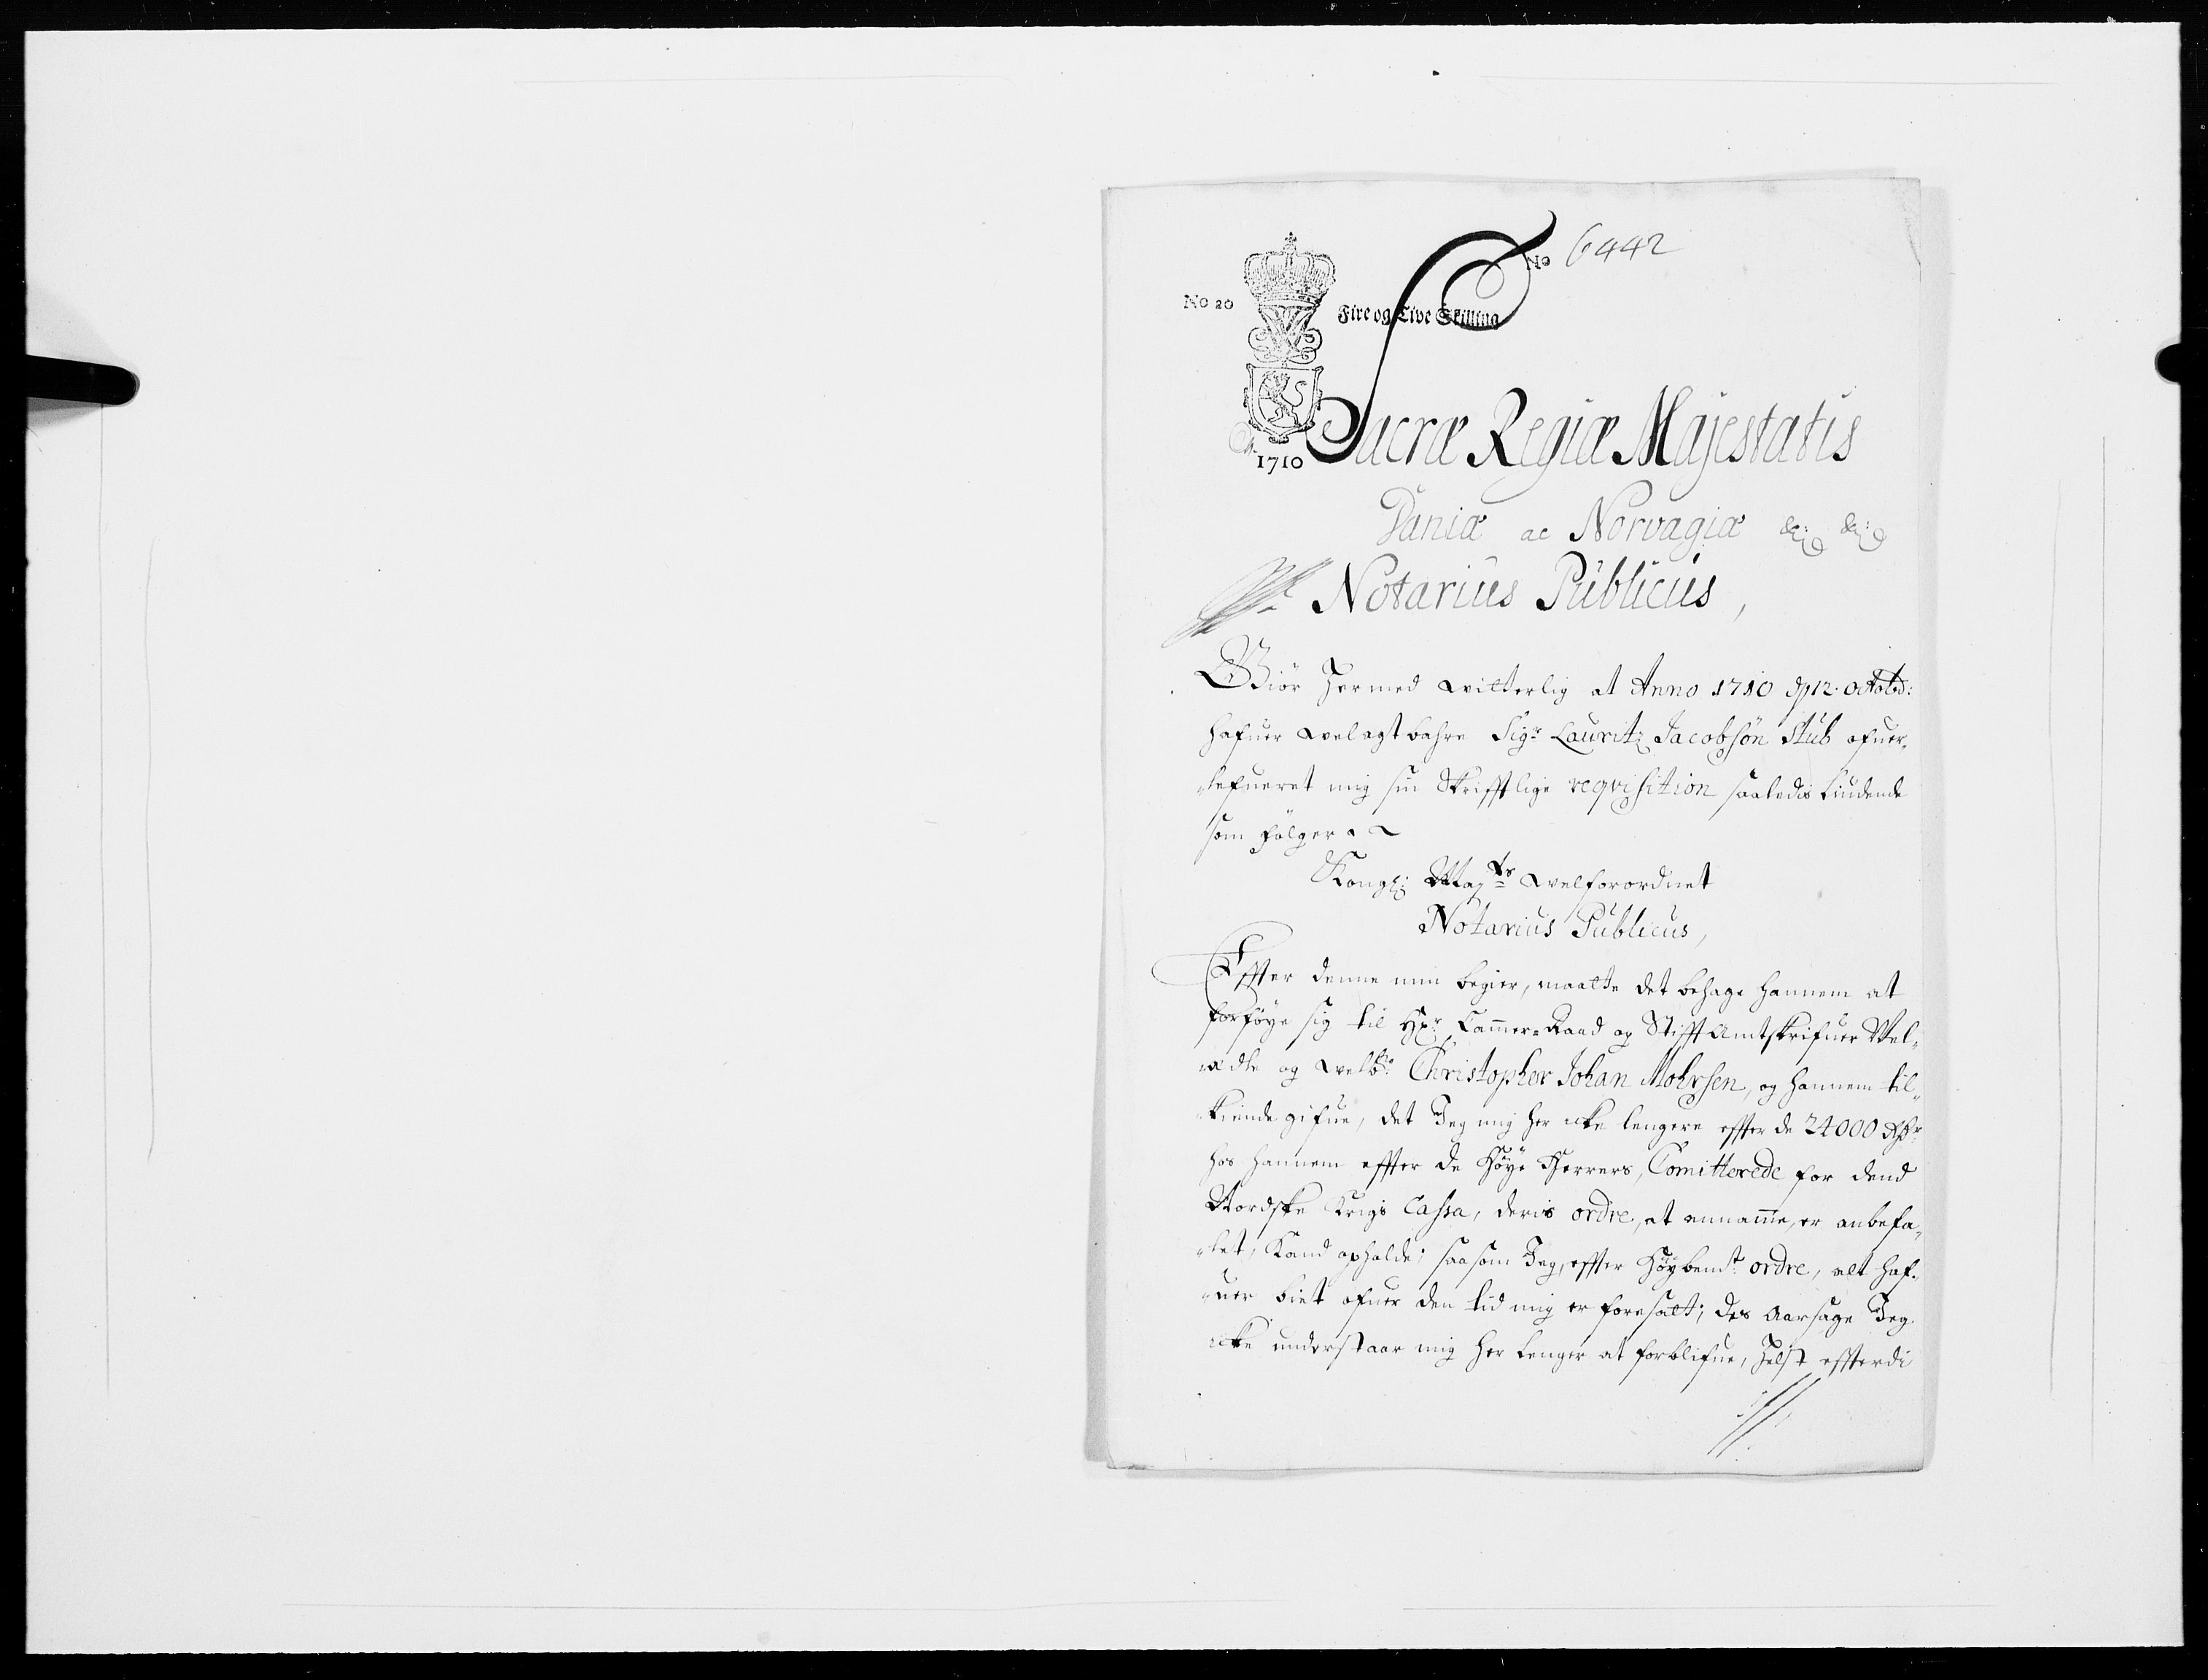 No 6442
No 20
Fire og Tive Skilling
1710
Sacræ Regiæ Majestatis
Daniæ ac Norvagiæ &c: &c:
Notarius Publicus,
Giör hermed witterlig at Anno 1710 d. 12. Octobr:
hafuer welagtbahre Sigr Lauritz Jacobsön Stub ofuer-
-lefueret mig sin Skrifftlige reqvisition saaledis liudende
som fölger
Kongl: Mayts welforordnet
Notarius Publicus,
Effter denne min begier, maatte det behage hannem at
forföye sig til Hr Cammer-Raad og StifftAmtskrifuer Wel-
-ædle og welbr Christopher Johan Mohrsen, og hannem til-
-kiende gifue, det Jeg mig her icke lengere effter de 24000 Rdr
hos hannem effter de Höye Herrers, Comitterede for dend
Nordske Krigs Cassa, deris ordre, at annamme, er anbefa-
-let, kand opholde; saasom Jeg, effter Höybemte ordre, alt haf-
-uer biet ofuer den tid mig er foresatt; des Aarsage Jeg
icke understaar mig her lenger at forblifue, helst effterdi